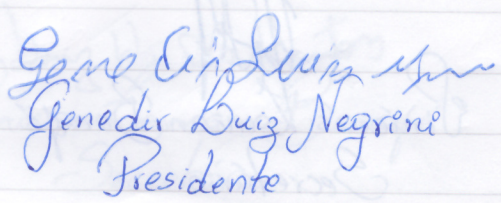 Genedir Luiz
Genedir Luiz Negrini
Presidente